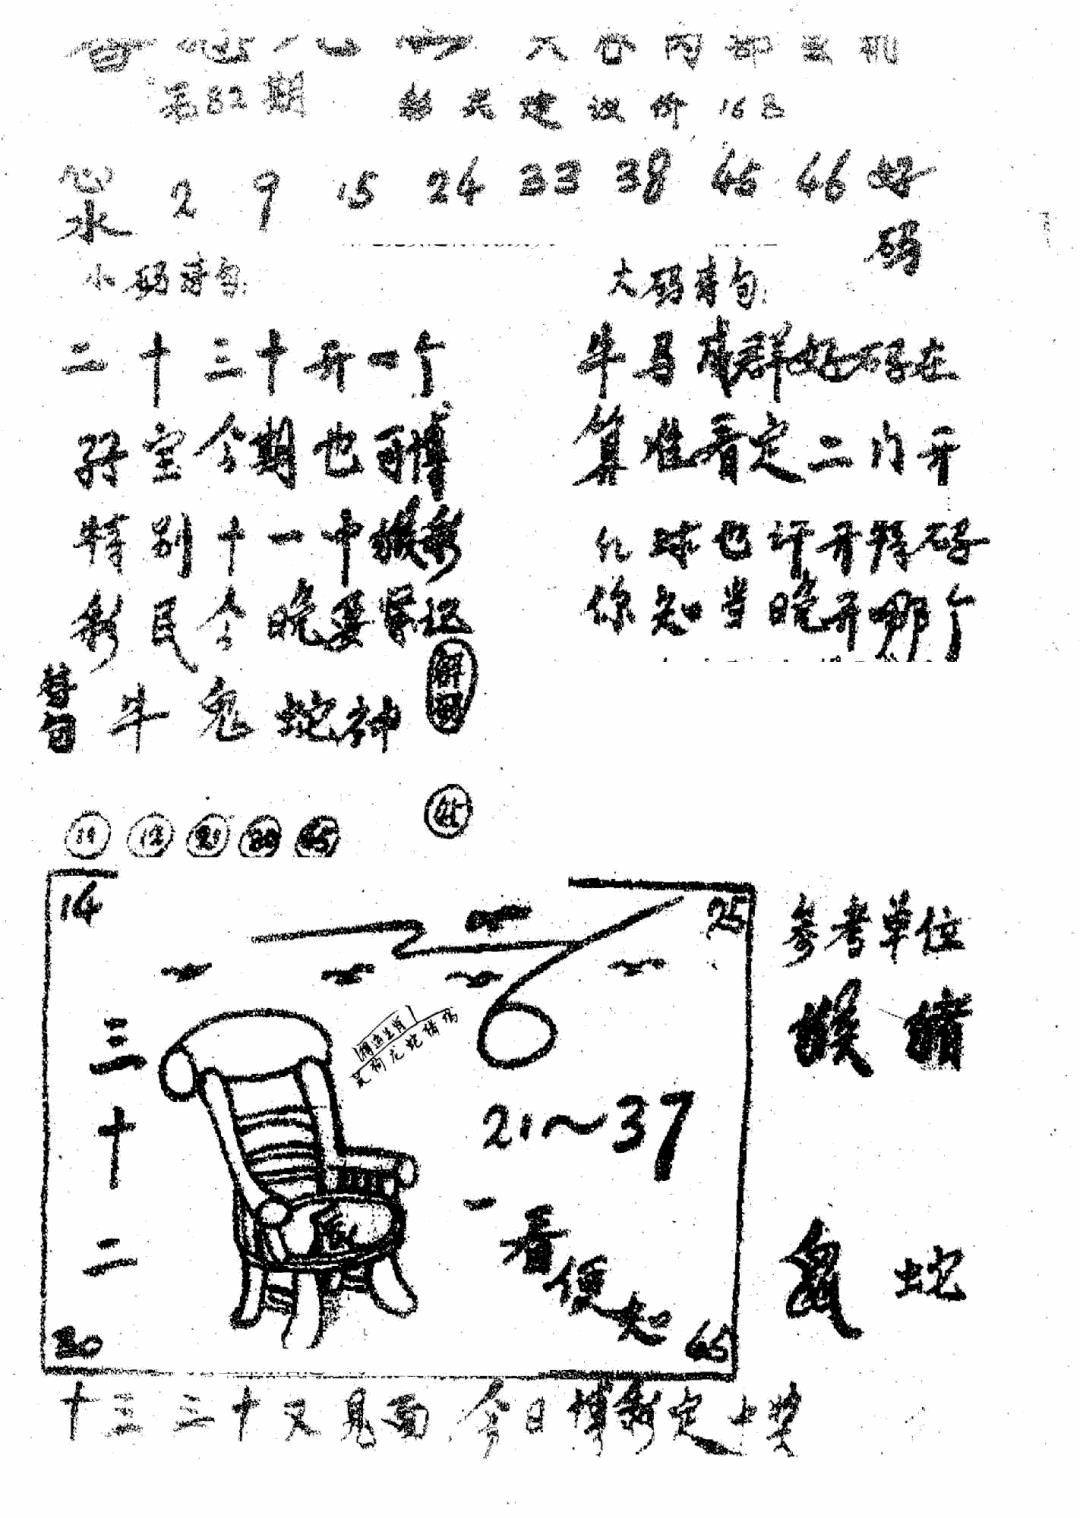 六合内部玄机
第82期 彩友建议价168
心水 2 9 15 24 33 38 45 46 好码
小码诗句:
二十三十开一个
孖宝今期也可博
特别十一中猴彩
彩民今晚要紧记
大码诗句:
牛马成群好码在
算准看定二门开
红球也许开特码
你知当晚开哪个
昔句 牛鬼蛇神
11 12 21 30 45
45
14 25
三十二
21~37
一看便知
30 45
参考单位
猴 猪
鼠 蛇
十三三十又见面 今日博彩定中奖